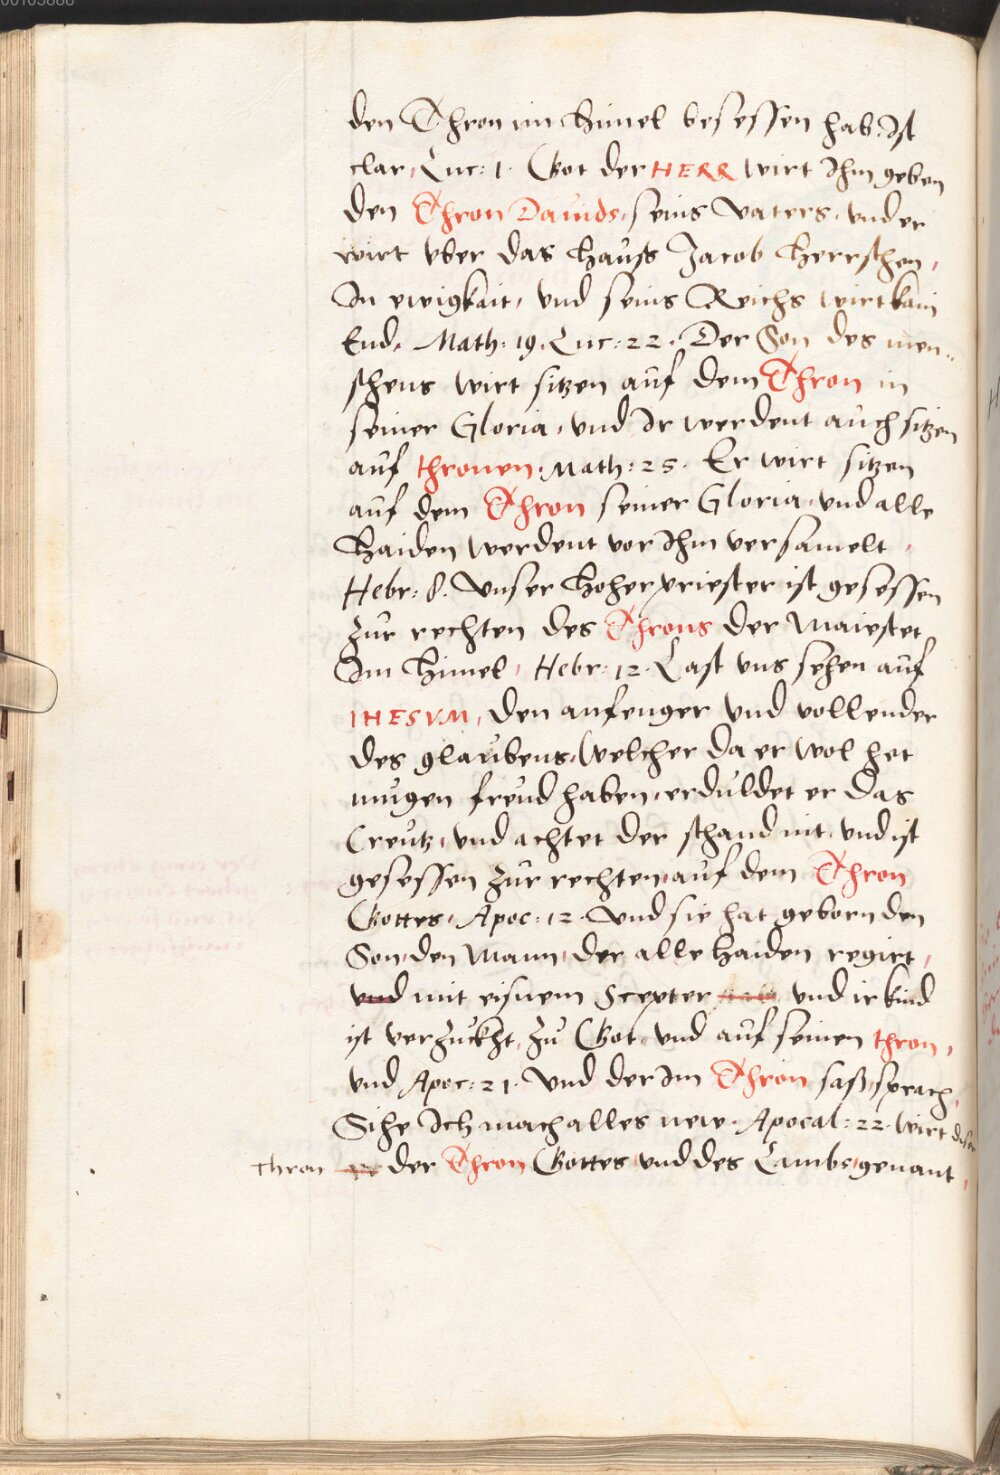 den Thron im himel besessen hab. Ist
clar, Luc: 1. Got der HERR wirt Ihm geben
den Thron Dauids, seins vaters, vnd er
wirt vber das hauß Jacob herrschen,
In ewigkait, vnd seins Reichs wirt kain
End. Math: 19. Luc: 22. Der Son des men„
schens wirt sitzen auf dem Thron in
seiner Gloria, vnd Ir werdent auch sitzen
auf thronen. Math: 25. Er wirt sitzen
auf dem Thron seiner Gloria, vnd alle
haiden werdent vor Ihm versamelt,
Hebr: 8. vnser hoher priester ist gesessen
zur rechten des Throns der Maiestet
Im himel, Hebr: 12. Last vns sehen auf
IHESVM, den anfenger vnd vollender
des glaubens, welcher da er wol het
mugen freud haben, erduldet er das
Creutz, vnd achtet der schand nit, vnd ist
gesessen zur rechten, auf dem Thron
Gottes, Apoc: 12. vnd sie hat geborn den
Son, den Mann, der alle haiden regirt,
vnd mit eisnem Scepter vnd ir kind
ist verzuckht, zu Got, vnd auf seinen thron,
vnd Apoc: 21. vnd der Im Thron saß, sprach,
Sihe Ich mach alles new. Apocal: 22. wirt diser
thron der Thron Gottes, vnd des Lambs, genant,